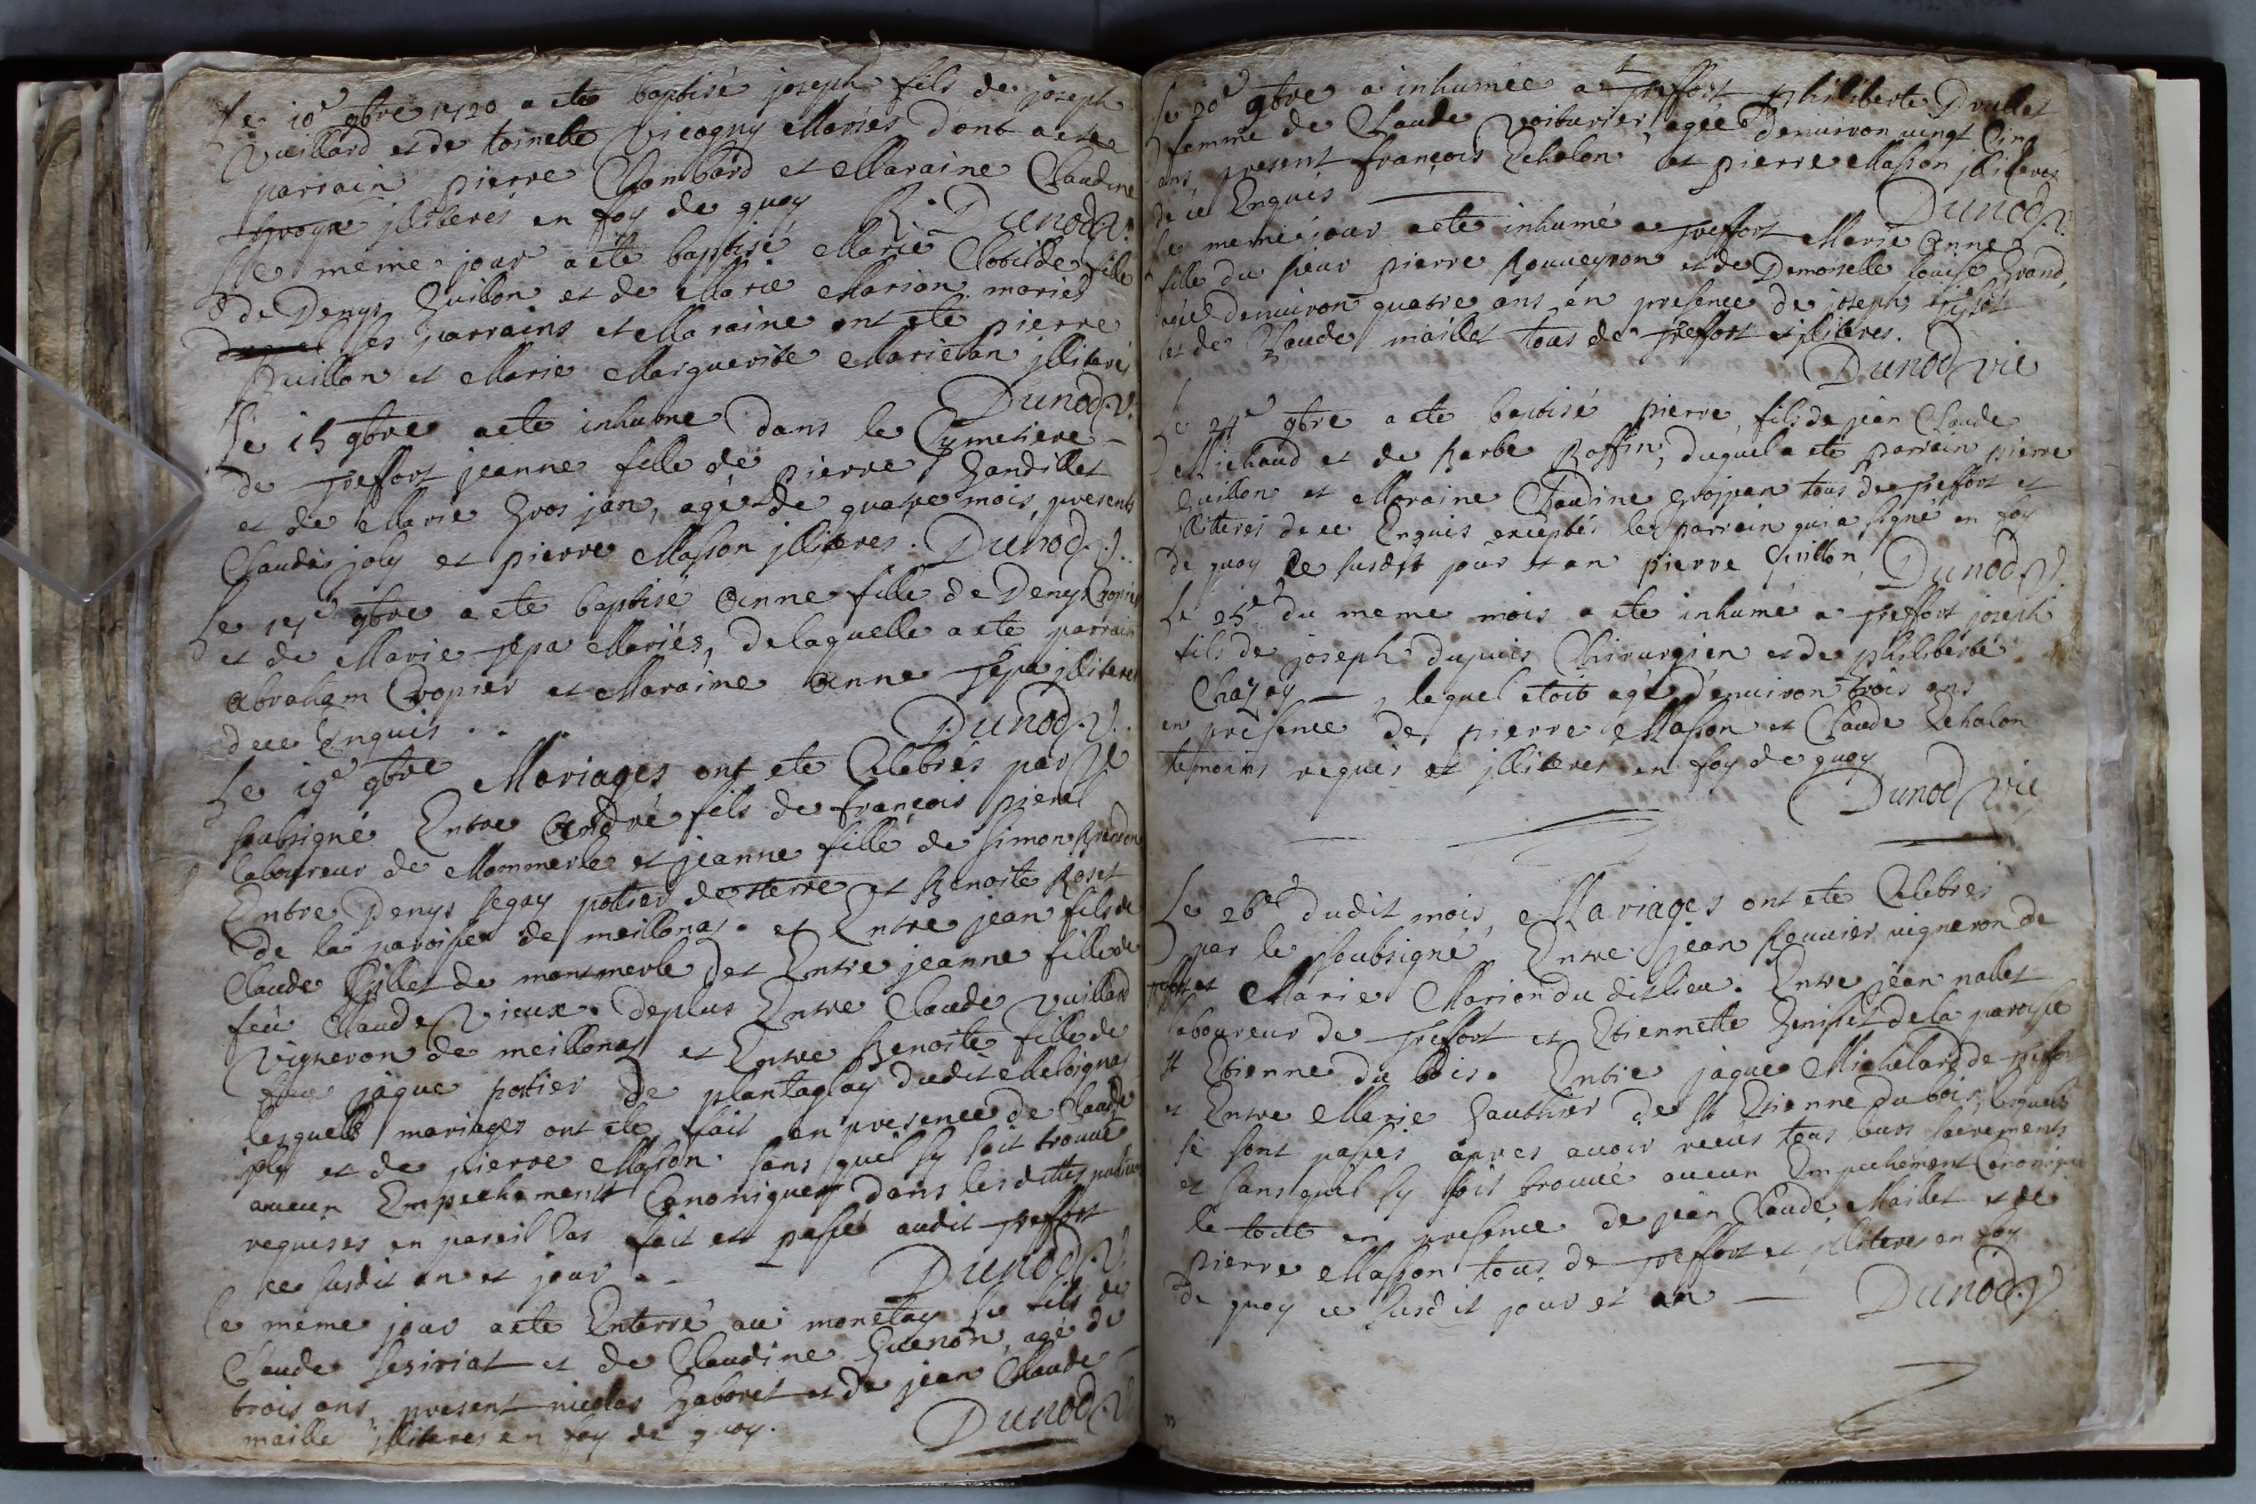 Le 10e 9bre 1720 a ete baptisé joseph fils de joseph
Vuillard et de toinette Vicogny Mariés dont a ete
parrain pierre Chombard et Maraine Claudine
illiterés en foy de quoy Dunod V.
Le meme jour a ete baptisé Marie Clotilde fille
de Denys Quillon et de Marie Marion mariés
les parrains et Maraine ont ete pierre
Quillon et Marie Marguerite Marietan illiterés
Dunod V.
Le 15 9bre a ete inhume dans le Cymetiere
de treffort jeanne fille de pierre Gandillet
et de Marie Gros jan, agé de quatre mois, presents
Claude joly et pierre Masson illiteres. Dunod V.
Le 9bre a ete baptisé Anne fille de Denys Cropier
et de Marie jepa Mariés, delaquelle a ete parrain
abraham Cropier et Maraine Anne jepa illiteres
de ce Enquis . . Dunod V.
Le 19e 9bre Mariages ont ete Celebrés par le
soubsigné Entre André fils de françois pierel
laboureur de Mommerle et jeanne fille de Simon
Entre Denys segay potier de terre et Benoite Roset
de la paroisse de meillonas. et Entre jean fils de
Claude de montmerle et Entre jeanne fille de
feu Claude Vieux. deplus Entre Claude Vuillard
Vigneron de meillonas et Entre Benoite fille de
feu jaque potier de plantaglay dudit Meloignas
lesquells mariages ont ete fait en presence de Claude
joly et de pierre Masson. sans quil sy soit trouvé
aucun Empechements Canoniques dans lesdittes
requises en pareil Cas fait et passé audit treffort
ce susdit an et jour . - Dunod V.
le meme jour a ete Enterré au monetay fils de
Claude sesiriat et de Claudine Guenon, agé de
trois ans, present nicolas Gaboret et de jean Claude
maille illiteres en foy de quoy. Dunod V.
Le 20e 9bre a inhumée a treffort philiberte Drullet
femme de Claude Voiturier, agée denuiron vingt Cinq
ans, present françois Echalon et pierre Masson illiterés
de ce Enquis Dunod V.
le meme jour a ete inhumé a treffort Marie Anne
fille du sieur pierre Rouueyron et de Demoiselle louise Grand,
agée denuiron quatre ans en presence de joseph
et de Claude maillet tous de treffort et illiteres.
Dunod vic
Le 24e 9bre a ete baptisé pierre, fils de jean Claude
Michaud et de Barbe Roffin, duquel a ete parrain pierre
Quillon et Moraine Claudine Grosjean tous de treffort et
illitterés de ce Enquis exceptés le parrain qui a signé en foy
de quoy Ce susdit jour et an pierre Quillon, Dunod V.
Le 25e du meme mois a ete inhumé a treffort joseph
fils de joseph dupuis Chirurgien et de philiberte
Chazay, lequel etoit agé d'enuiron trois ans
en presence de pierre Masson et Claude Echalon
temoins requis et illiteres en foy de quoy
Dunod Vic
Le 26e dudit mois, Mariages ont ete Celebres
par le soubsigné Entre jean Rouuier vigneron de
treffort et Marie Marion du dit lieu. Entre jean nallet
laboureur de treffort et Etiennette Genisset de la paroisse
st Etienne du bois. Entre jaque Michelard de treffort
et Entre Marie Gauthier de st Etienne du bois, lesquells
se sont passés apres avoir recus tous leurs sacrements
et sans quil sy soit trouvé aucun Empechement Canonique
le tout en presence de jean Claude Maillet et de
pierre Masson tous de treffort et illiteres en foy
de quoy ce susdit jour et an Dunod V.